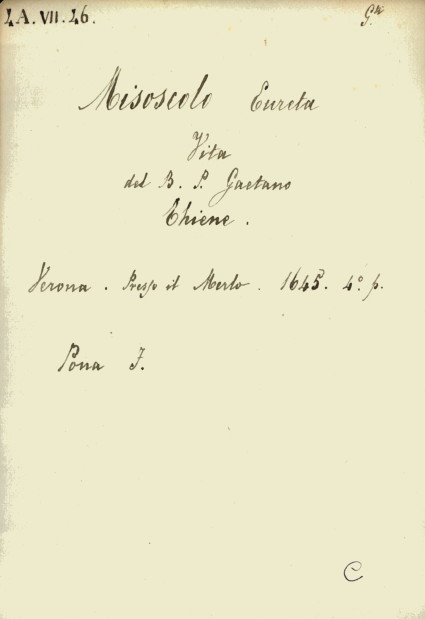 4A.VII.46. G.le
Misoscolo Eureta
Vita
del B. P. Gaetano
Thiene.
Verona. Presso il Merlo. 1645. 4° p.
Pona F.
C